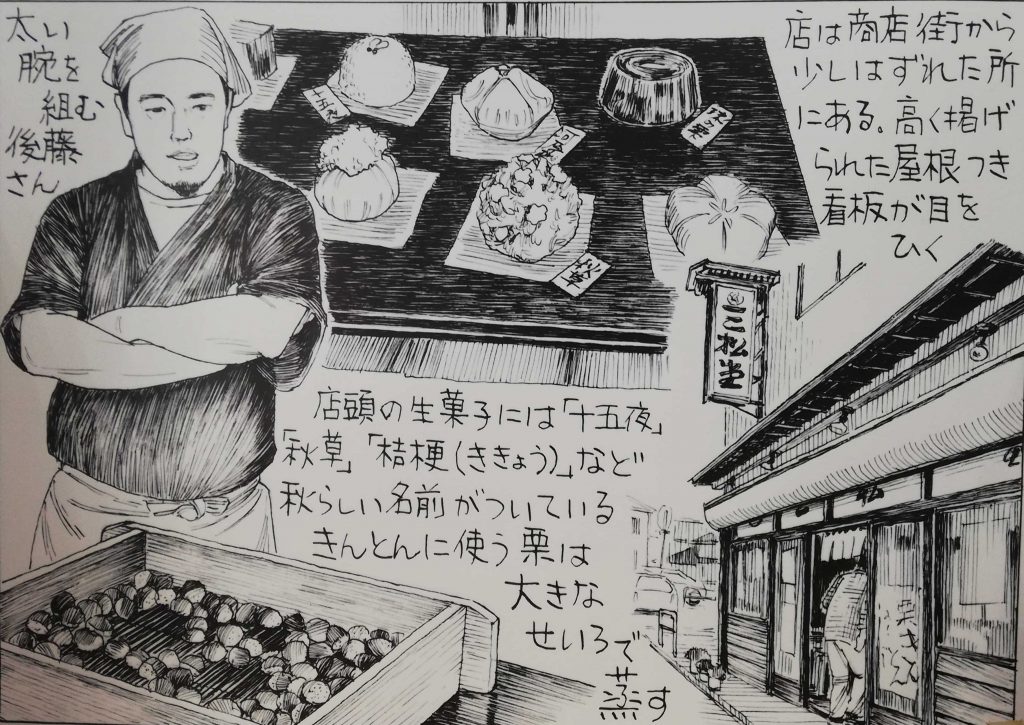 太い
腕を
組む
後藤
さん
店は商店街から
少しはずれた所
にある。高く掲げ
られた屋根つき
看板が目を
ひく
十五夜
秋草
二松堂
店頭の生菓子には「十五夜」
「秋草」「桔梗(ききょう)」など
秋らしい名前がついている
きんとんに使う栗は
大きな
せいろで
蒸す